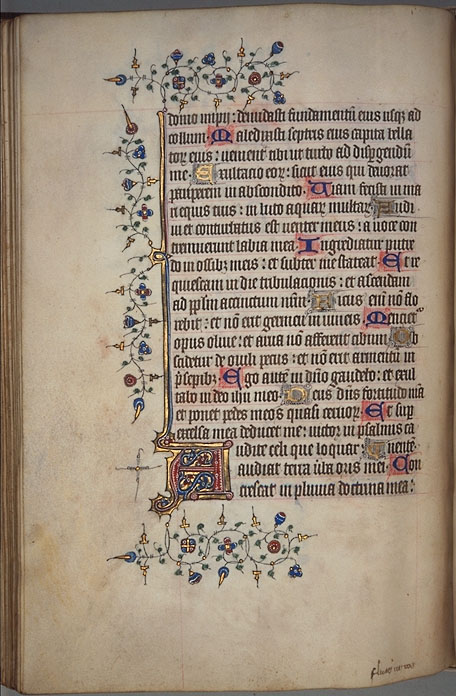 domo impij: denudasti fundamentū eius usq; ad
collum. Maledixisti sceptris eius capiti bella
torꝝ eius: uenientibꝰ ut turbo ad dispergendū
me. Exultatio eorꝝ: sicut eius qui deuorat
pauperem in abscondito. Uiam fecisti in ma
ri equis tuis: in luto aquarꝝ multarꝝ. Audi
ui et conturbatus est uenter meus: a uoce con
tremuerunt labia mea. Ingrediatur putre
do in ossibꝫ meis: et subter me scateat. Ut re
quiescam in die tribulacionis: et ascendam
ad pp̄lm accinctum nr̄m. Ficus eni᷑ nō flo
rebit: et nō erit germen in uineis. Mentiet᷑
opus oliue: et arua nō afferent cibum. Ab
scidetur de ouili pecus: et nō erit armentū in
p̄sepibꝫ. Ego autē in dn̄o gaudebo: et exul
tabo in deo ihū meo. Deus dn̄s fortitudo mea
et ponet pedes meos quasi ceruorꝝ. Et sup
excelsa mea deducet me: uictor in psalmis ca
Audite celi que loquar: nentē.
audiat terra ūba oris mei. Con
crescat in pluuia doctrina mea:
fluat ut ros